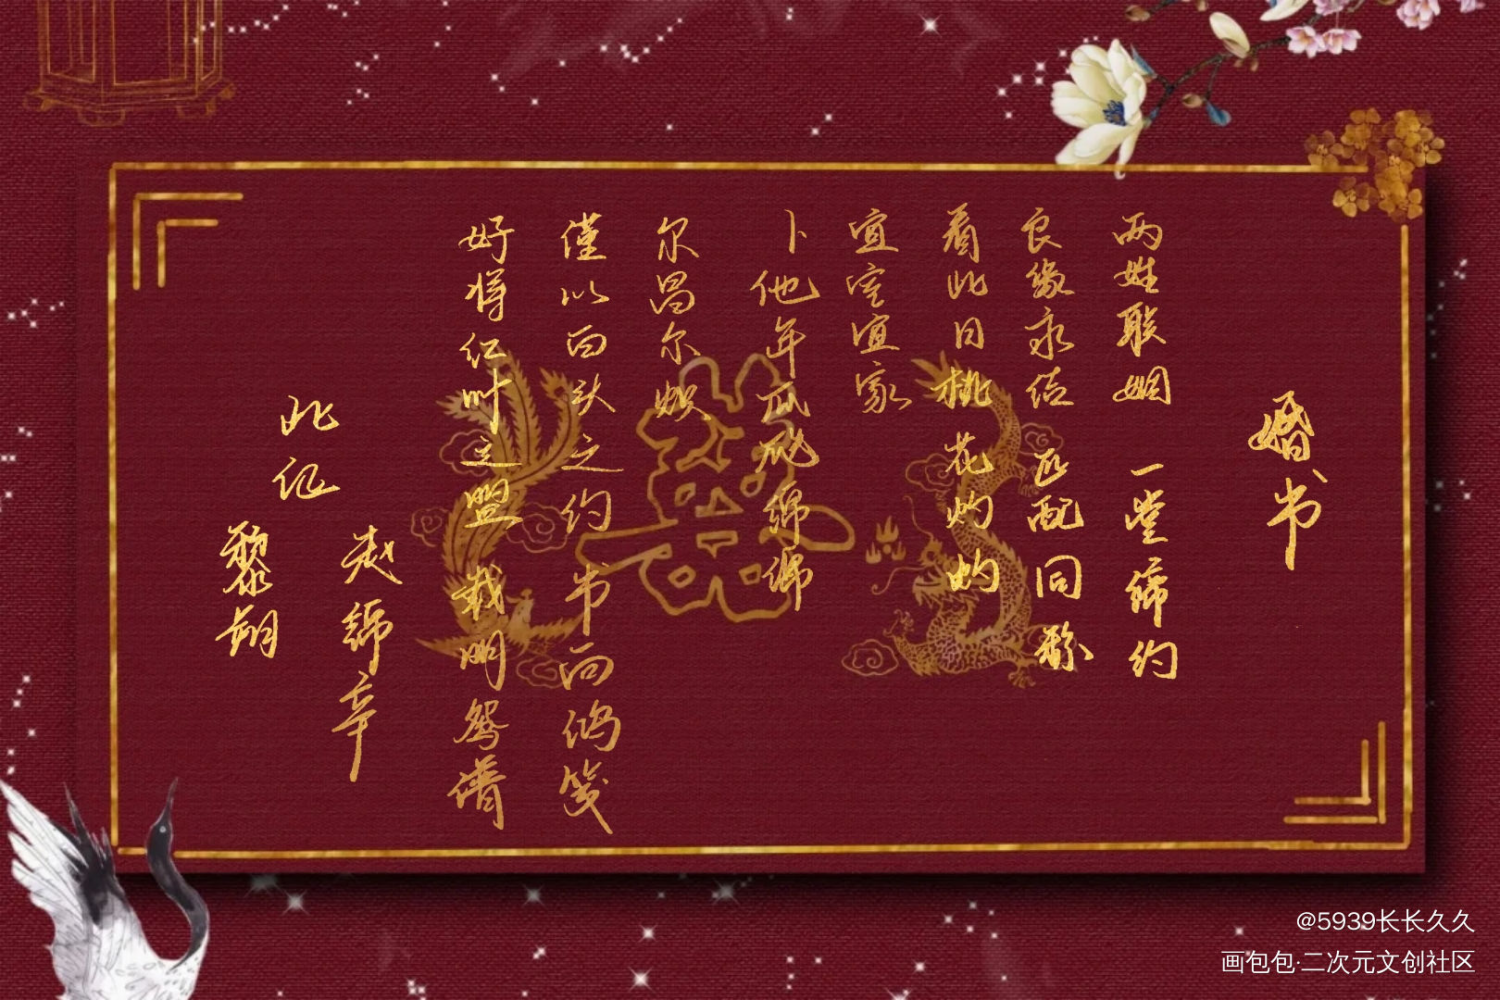 婚书
两姓联姻 一堂缔约
良缘永结 匹配同称
看此日桃花灼灼
宜室宜家
卜他年瓜瓞绵绵
尔昌尔炽
僅以白头之约 书向鸿笺
好将红叶之盟 载明鸳谱
此证
赵绵辛
黎朔
@5939长长久久
画包包·二次元文创社区